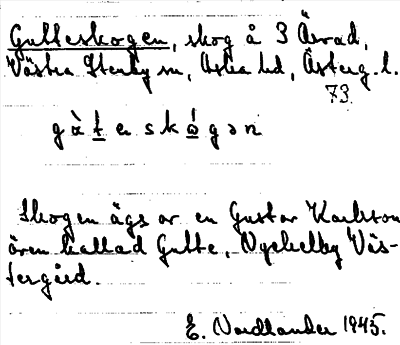 Gutteskogen, skog å 3 Äsvad,
Västra Stenby sn, Aska hd, Österg. l.
73
gàteskógən
Skogen ägs av en Gustav Karlsson
även kallad Gutte, Nyckelby Väs-
tergård.
E. Nordlander 1945.